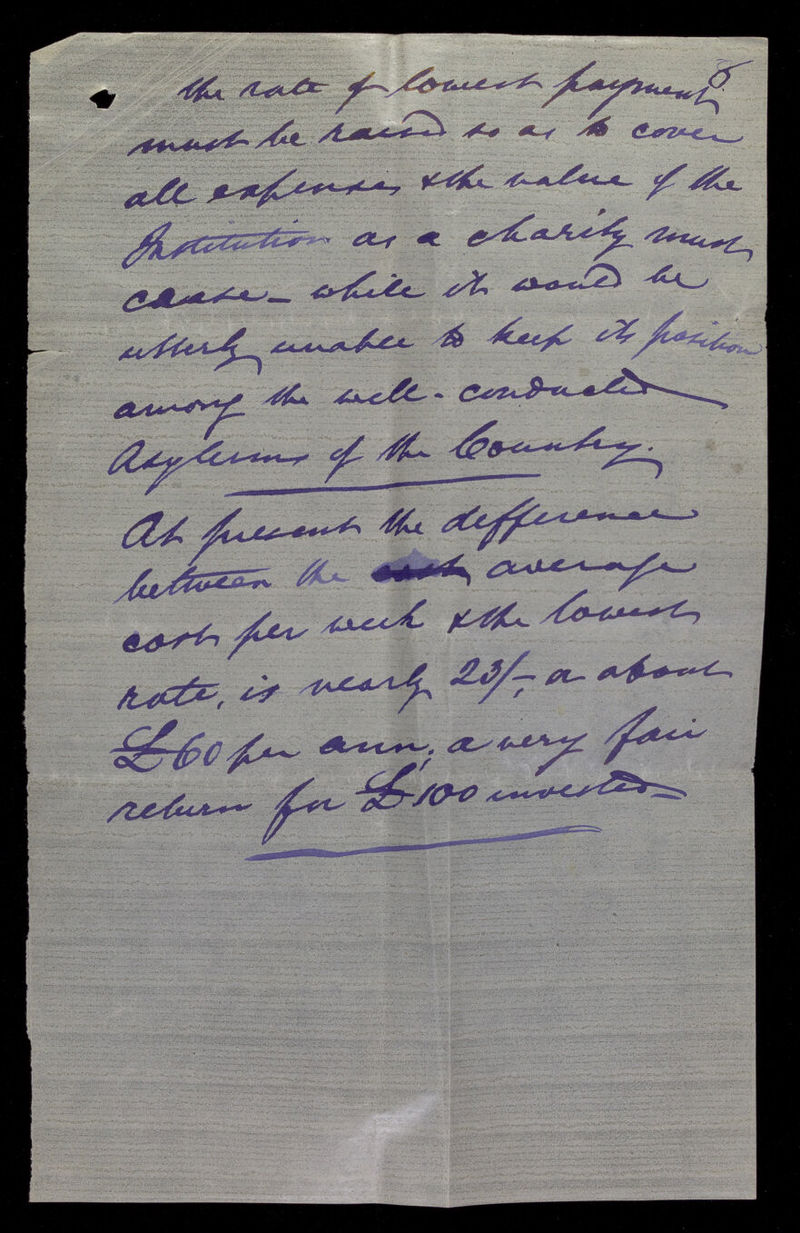 8
the rate of lowest payment
must be raised so as to cover
all expenses & the value of the
Institution as a charity must
cease – while it would be
utterly unable to keep its position
among the well-conducted
Asylums of the Country.
At present the difference
between the average
cost per week & the lowest
rate, is nearly 23/-, or about
£60 per ann; a very fair
return for £100 invested –